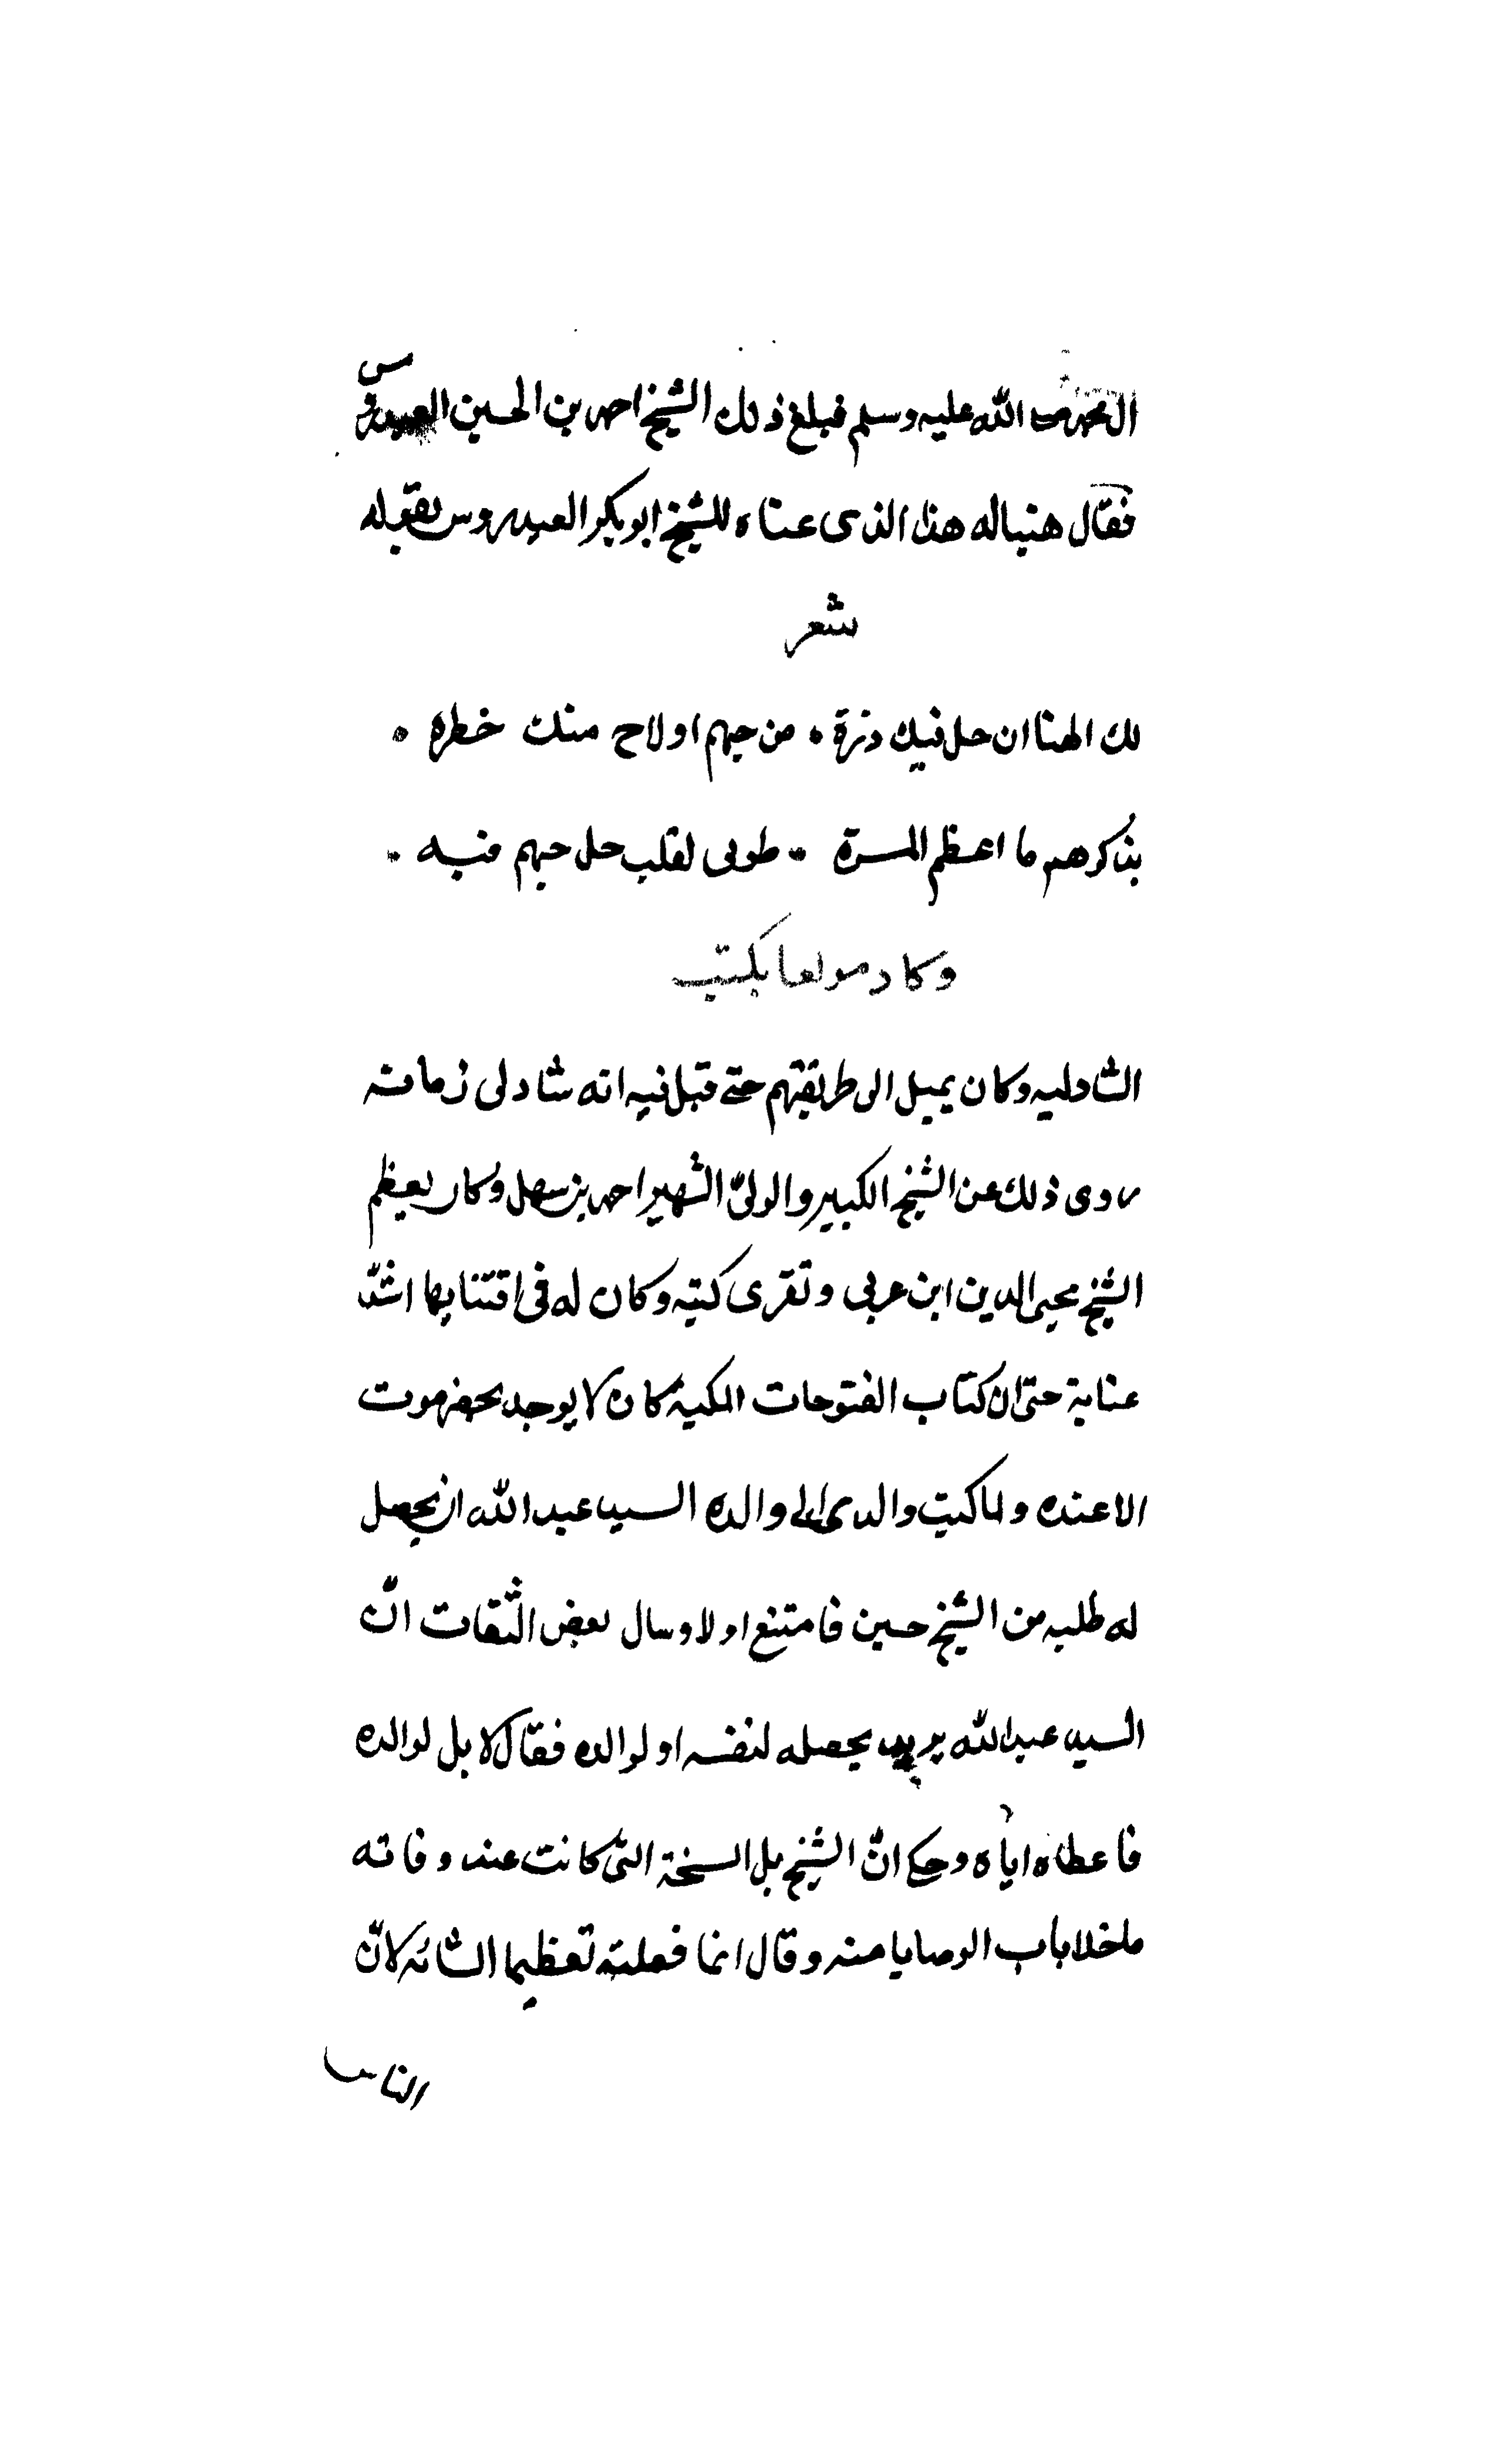 ال محمد صلى الله عليه وسلم فبلغ ذلك الشيخ احمد بن الحسين العيدروس
فقال هنياله هذا الذى عناه للشيخ ابوبكر العيدروس بقوله
شعر
لك الهنا ان حل فيك ذرة • من حبهم او لاح منك خطره •
بذكرهم ما اعظم المسرة • طوبى لقلب حل حبهم فيه •
وكان مولعا بكتب
الشادليه وكان يميل الى طريقتهم حتى قيل فيه انه شادلى زمانه
روى ذلك عن الشيخ الكبير والولىّ الشهير احمد بن سهل وكان يعظم
الشيخ محيى الدين ابن عربى وتقرى كتبه وكان له فى اقتنايها اشدّ
عناية حتى ان كتاب الفتوحات المكية كان لا يوجد بحضرموت
الا عنده ولما كتب والدى الى والده السيد عبد الله ان يحصل
له طلبه من الشيخ حسين فامتنع اولا وسال بعض الثقات انّ
السيد عبد الله يريد يحصله لنفسه او لوالده فقال لا بل لوالده
فاعطاه اياه وحكى انّ الشيخ بل النسخة التى كانت عند وفاته
ما خلا باب الوصايا منه وقال انما فعلته تعظيما لشانه لانّ
الناس